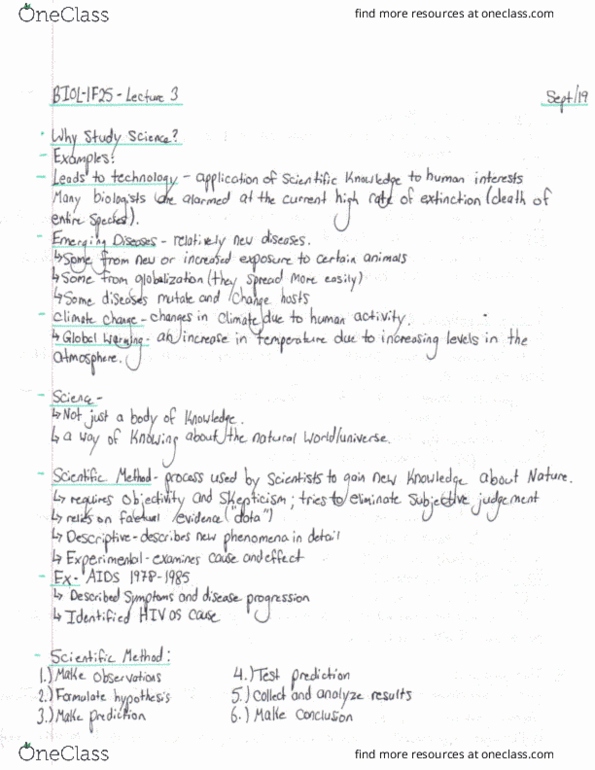 OneClass
find more resources at oneclass.com
BIOL-1F25 - Lecture 3 Sept/19
• Why Study Science?
- Examples:
- Leads to technology - application of Scientific Knowledge to human interests
Many biologists are alarmed at the current high rate of extinction (death of
entire species).
- Emerging Diseases - relatively new diseases.
↳ Some from new or increased exposure to certain animals
↳ Some from globalization (they spread more easily)
↳ Some diseases mutate and change hosts
- Climate change - changes in Climate due to human activity.
↳ Global Warming - an increase in temperature due to increasing levels in the
atmosphere.
- Science -
↳ Not just a body of Knowledge.
↳ a way of Knowing about the natural World/universe.
- Scientific Method - process used by Scientists to gain new Knowledge about Nature.
↳ requires Objectivity and Skepticism; tries to eliminate Subjective judgement
↳ relies on factual evidence ("data")
↳ Descriptive - describes new phenomena in detail
↳ Experimental - examines cause and effect
- Ex - AIDS 1978-1985
↳ Described Symptoms and disease progression
↳ Identified HIV as cause
- Scientific Method:
1.) Make Observations 4.) Test prediction
2.) Formulate hypothesis 5.) Collect and analyze results
3.) Make prediction 6.) Make Conclusion
OneClass
find more resources at oneclass.com